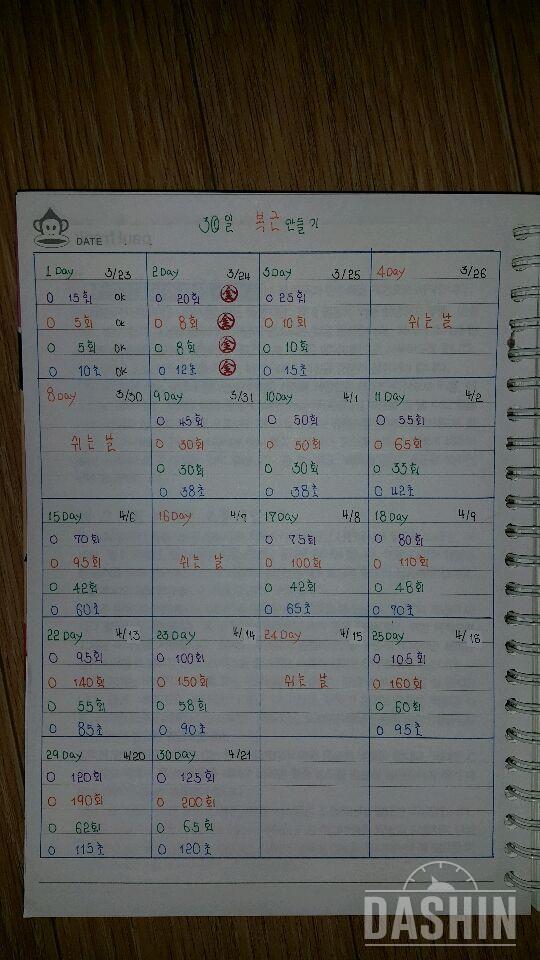 30일 복근 만들기
DATE
1 Day 3/23 2 Day 3/24 3 Day 3/25 4 Day 3/26
O 15회 OK O 20회 O 25회
O 5회 OK O 8회 O 10회 쉬는 날
O 5회 OK O 8회 O 10회
O 10초 OK O 12초 O 15초
8 Day 3/30 9 Day 3/31 10 Day 4/1 11 Day 4/2
O 45회 O 50회 O 55회
쉬는 날 O 30회 O 50회 O 65회
O 30회 O 30회 O 33회
O 38초 O 38초 O 42초
15 Day 4/6 16 Day 4/7 17 Day 4/8 18 Day 4/9
O 70회 O 75회 O 80회
O 95회 쉬는 날 O 100회 O 110회
O 42회 O 42회 O 48회
O 60초 O 65초 O 70초
22 Day 4/13 23 Day 4/14 24 Day 4/15 25 Day 4/16
O 95회 O 100회 O 105회
O 140회 O 150회 쉬는 날 O 160회
O 55회 O 58회 O 60회
O 85초 O 90초 O 95초
29 Day 4/20 30 Day 4/21
O 120회 O 125회
O 190회 O 200회
O 62회 O 65회
O 115초 O 120초
DASHIN